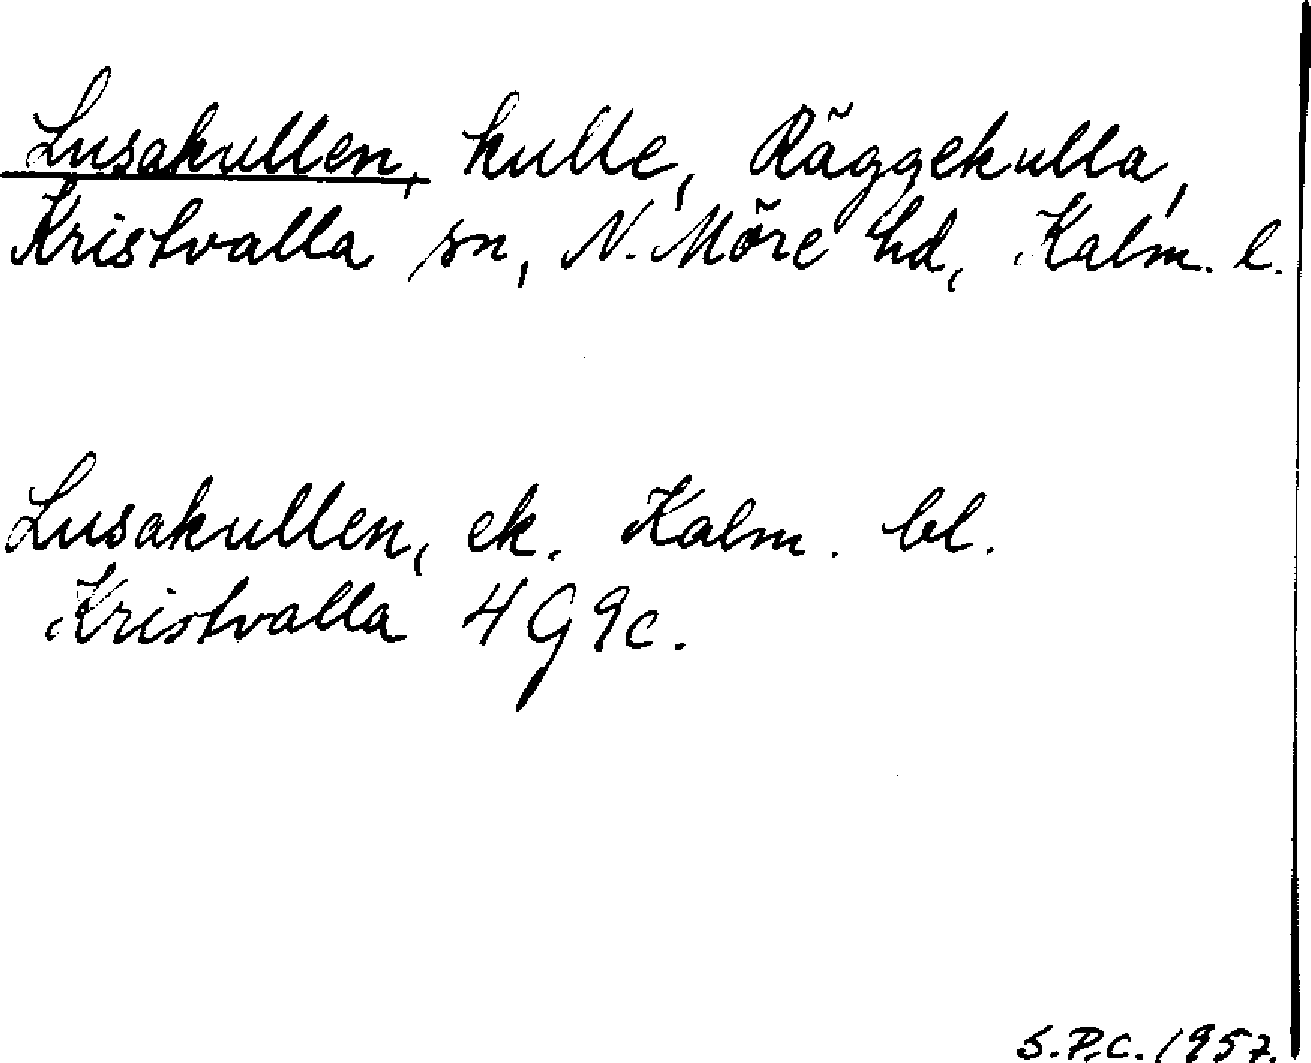 Lusakullen, kulle, Räggekulla,
Kristvalla sn, N. Möre hd, Kalm. l.
Lusakullen, ek. Kalm. bl.
Kristvalla 4G9c.
S.P.C. 1957.